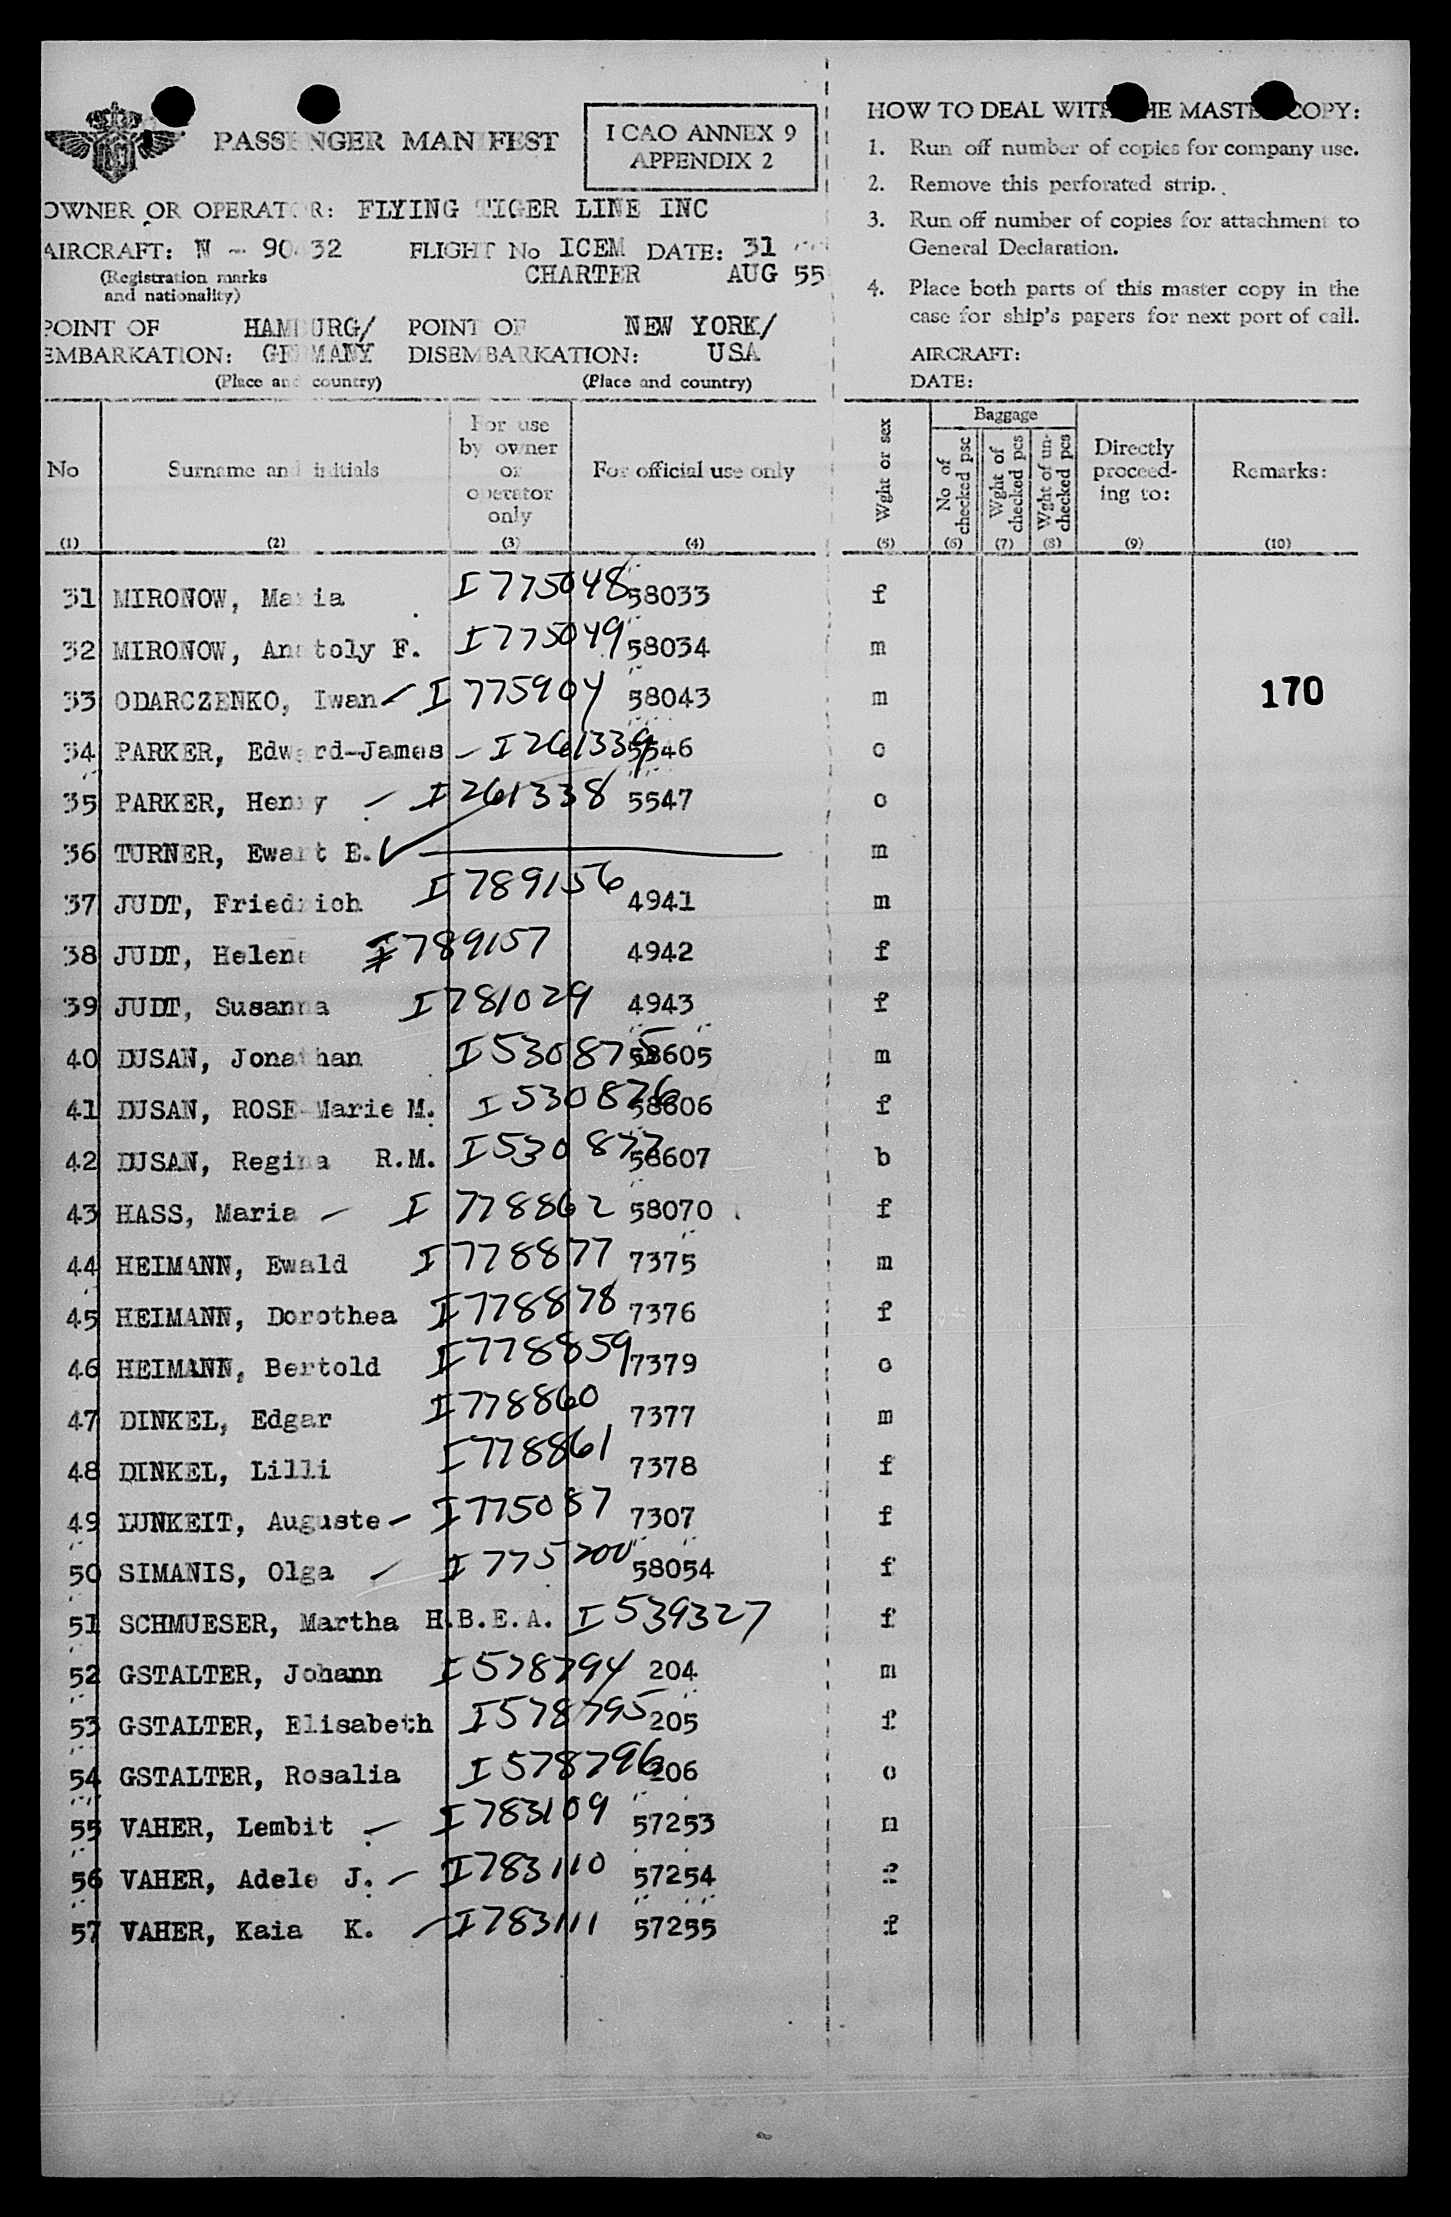 PASSENGER MANIFEST
I CAO ANNEX 9
APPENDIX 2
OWNER OR OPERATOR: FLYING TIGER LINE INC
AIRCRAFT: N - 90 32 FLIGHT No ICEM DATE: 31
(Registration marks CHARTER AUG 55
and nationality)
POINT OF HAMBURG/ POINT OF NEW YORK/
EMBARKATION: GERMANY DISEMBARKATION: USA
(Place and country) (Place and country)
HOW TO DEAL WITH THE MASTER COPY:
1. Run off number of copies for company use.
2. Remove this perforated strip.
3. Run off number of copies for attachment to
General Declaration.
4. Place both parts of this master copy in the
case for ship's papers for next port of call.
AIRCRAFT:
DATE:
No Surname and initials For use by owner or operator only For official use only Wght or sex Baggage No of checked psc Wght of checked pcs Wght of un-checked pcs Directly proceed-ing to: Remarks:
(1) (2) (3) (4) (5) (6) (7) (8) (9) (10)
31 MIRONOW, Maria I 775048 58033 f
32 MIRONOW, Anatoly F. I 775049 58034 m
33 ODARCZENKO, Iwan - I 775904 58043 m 170
34 PARKER, Edward-James - I 261339 5546 o
35 PARKER, Henry - I 261338 5547 o
36 TURNER, Ewart E. m
37 JUDT, Friedrich I 789156 4941 m
38 JUDT, Helene I 789157 4942 f
39 JUDT, Susanna I 781029 4943 f
40 DUSAN, Jonathan I 530875 58605 m
41 DUSAN, ROSE-Marie M. I 530876 58606 f
42 DUSAN, Regina R.M. I 530877 58607 b
43 HASS, Maria - I 778862 58070 f
44 HEIMANN, Ewald I 778877 7375 m
45 HEIMANN, Dorothea I 778878 7376 f
46 HEIMANN, Bertold I 778859 7379 o
47 DINKEL, Edgar I 778860 7377 m
48 DINKEL, Lilli I 778861 7378 f
49 LUNKEIT, Auguste - I 775087 7307 f
50 SIMANIS, Olga - I 775200 58054 f
51 SCHMUESER, Martha H.B.E.A. I 539327 f
52 GSTALTER, Johann I 578794 204 m
53 GSTALTER, Elisabeth I 578795 205 f
54 GSTALTER, Rosalia I 578796 206 o
55 VAHER, Lembit - I 783109 57253 m
56 VAHER, Adele J. - I 783110 57254 f
57 VAHER, Kaia K. - I 783111 57255 f